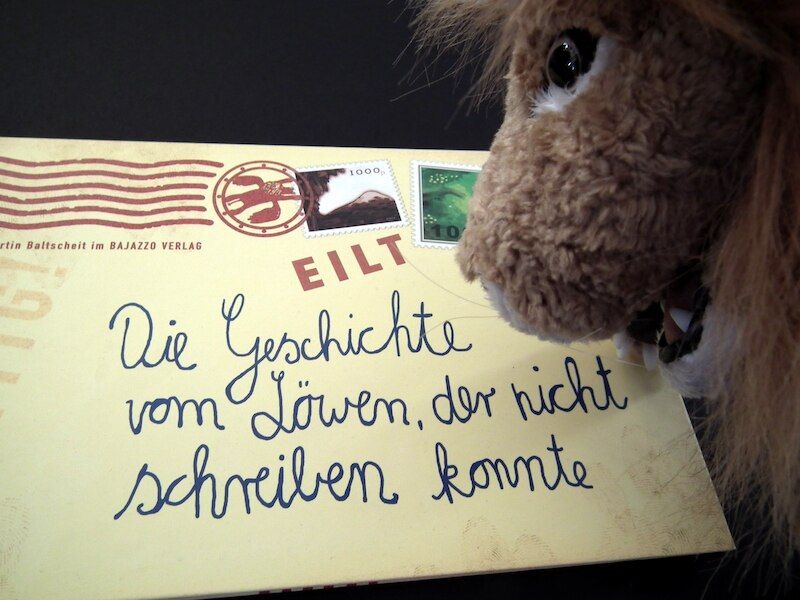 1000p
10
rtin Baltscheit im BAJAZZO VERLAG
EILT
Die Geschichte
vom Löwen, der nicht
schreiben konnte